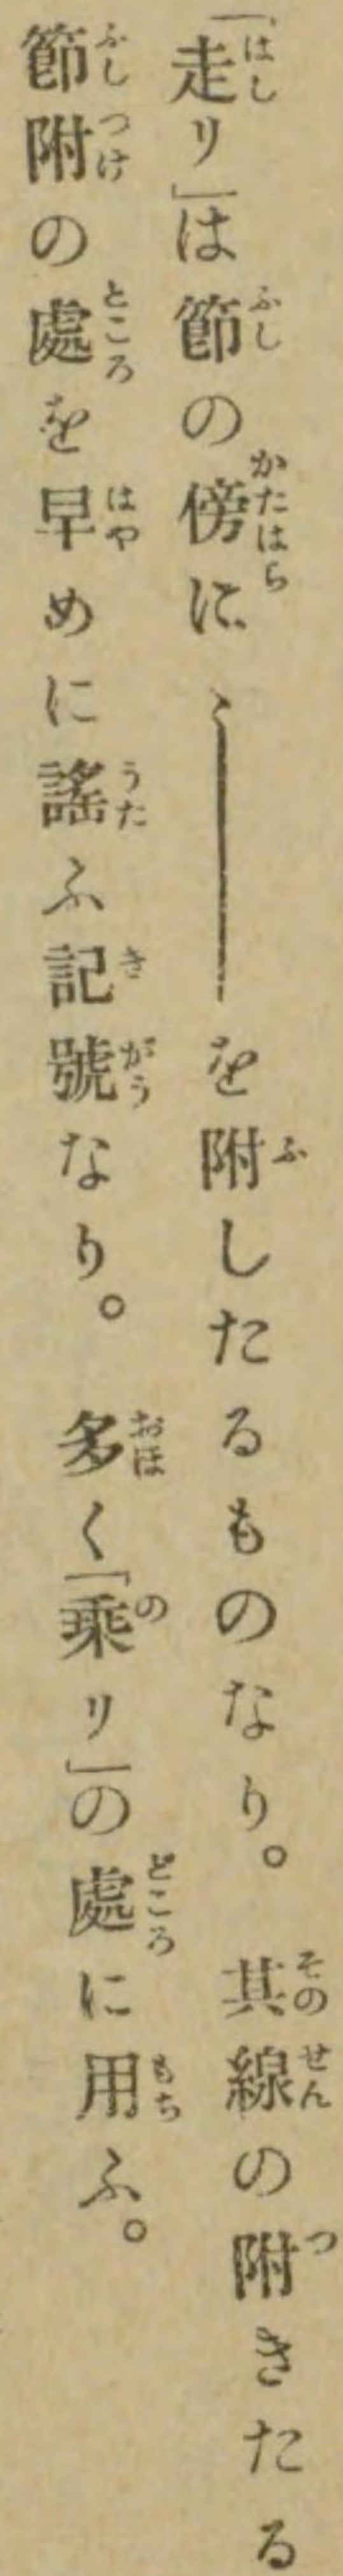 「走リ」は節の傍に﹅――を附したるものなり。其線の附きたる
節附の處を早めに謠ふ記號なり。多く「乘リ」の處に用ふ。